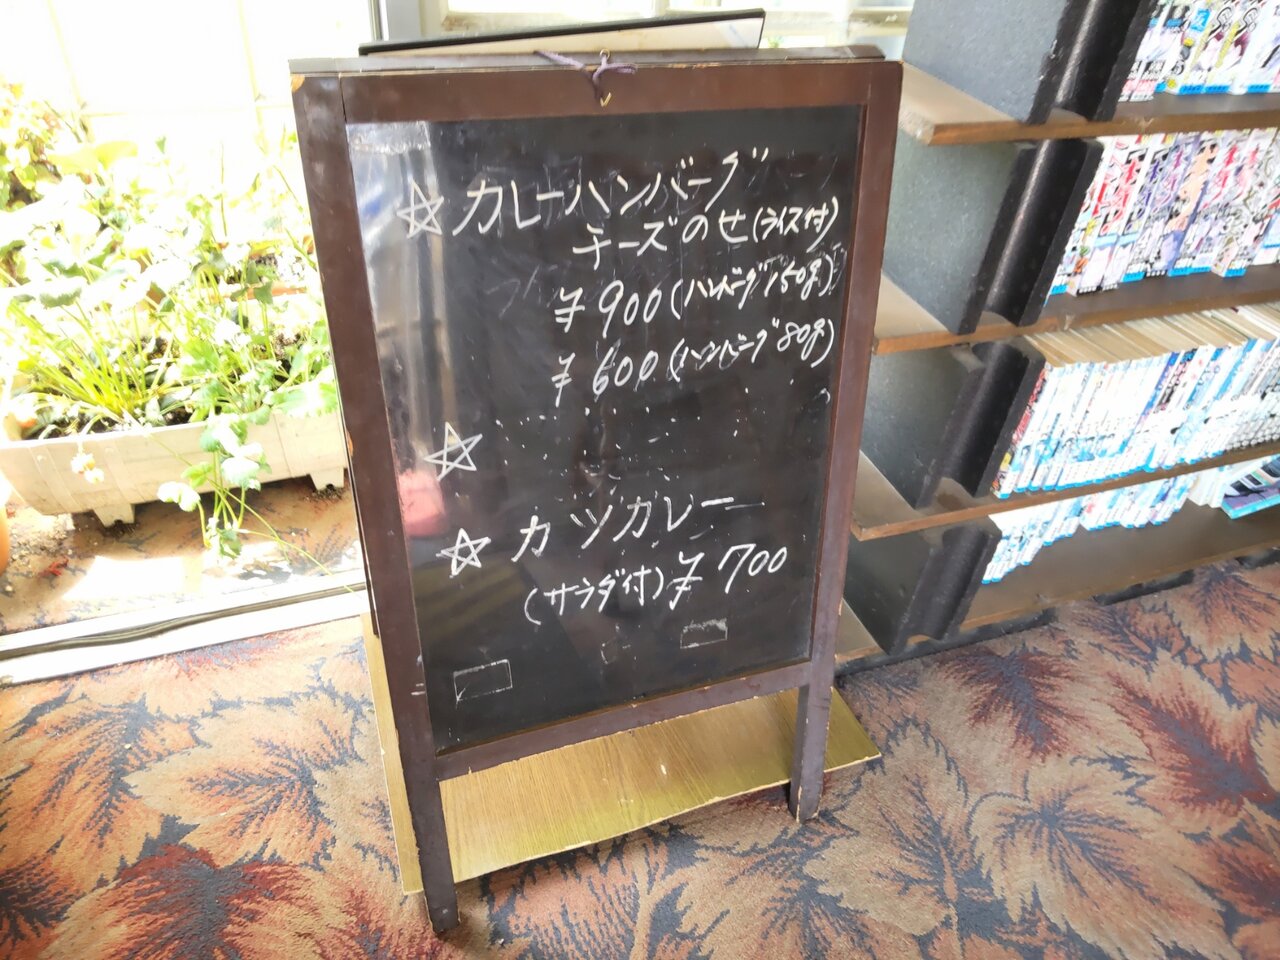 ☆カレーハンバーグ
チーズのせ(ライス付)
¥900(ハンバーグ150g)
¥600(ハンバーグ80g)
☆
☆カツカレー
(サラダ付)¥700